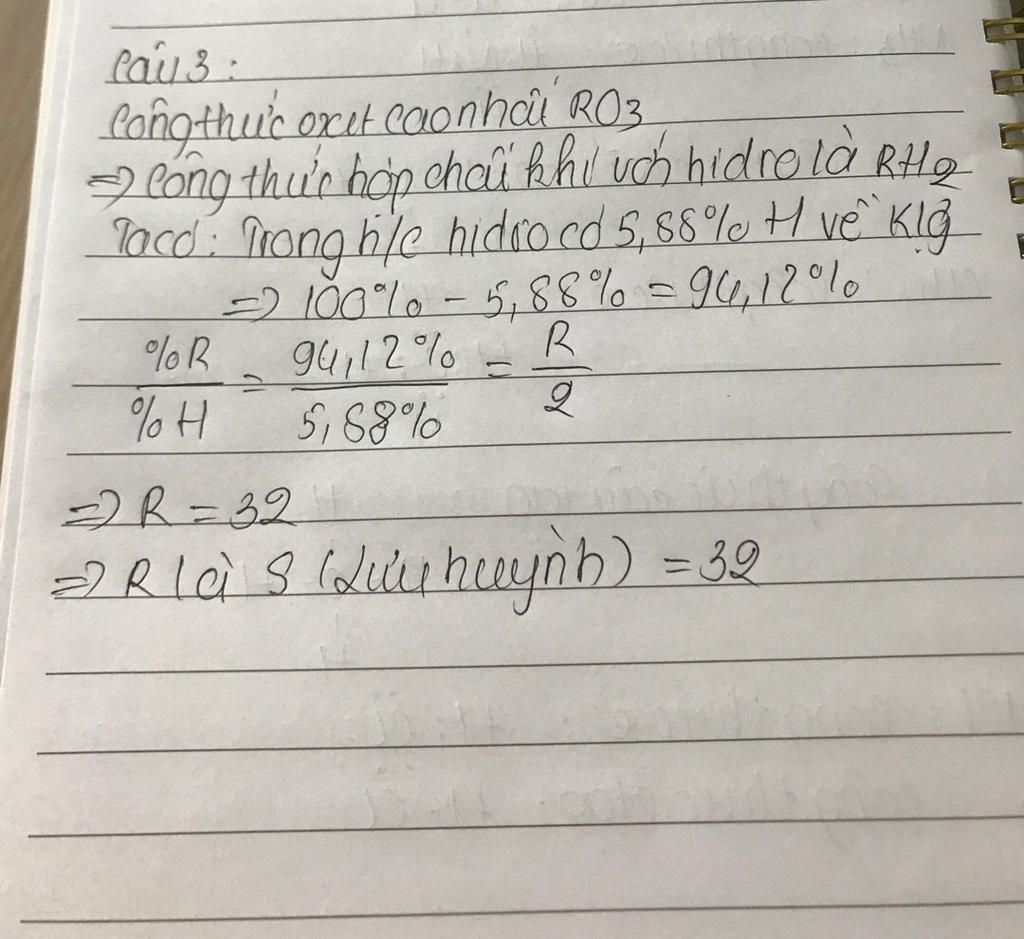 Câu 3 :
Công thức oxit cao nhất RO3
=> Công thức hợp chất khí với hidro là RH2
Ta có : Trong h/c hidro có 5,88% H về Klg
=> 100% - 5,88% = 94,12%
%R / %H = 94,12% / 5,88% = R / 2
=> R = 32
=> R là S (Lưu huỳnh) = 32